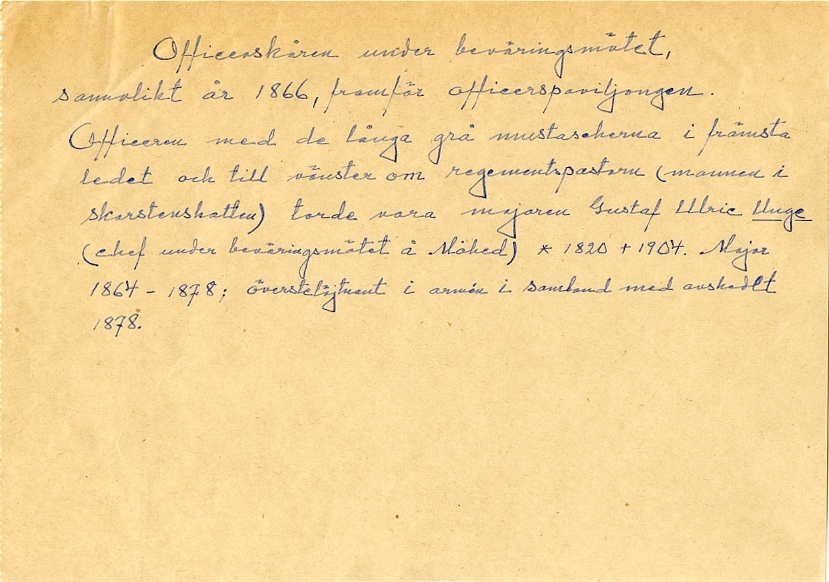 Officerskåren under beväringsmötet,
sannolikt år 1866, framför officerspaviljongen.
Officeren med de långa grå mustascherna i främsta
ledet och till vänster om regementspastorn (mannen i
skorstenshatten) torde vara majoren Gustaf Ulric Unge
(chef under beväringsmötet å Mohed) * 1820 + 1904. Major
1864 - 1878; överstelöjtnant i armén i samband med avskedet
1878.